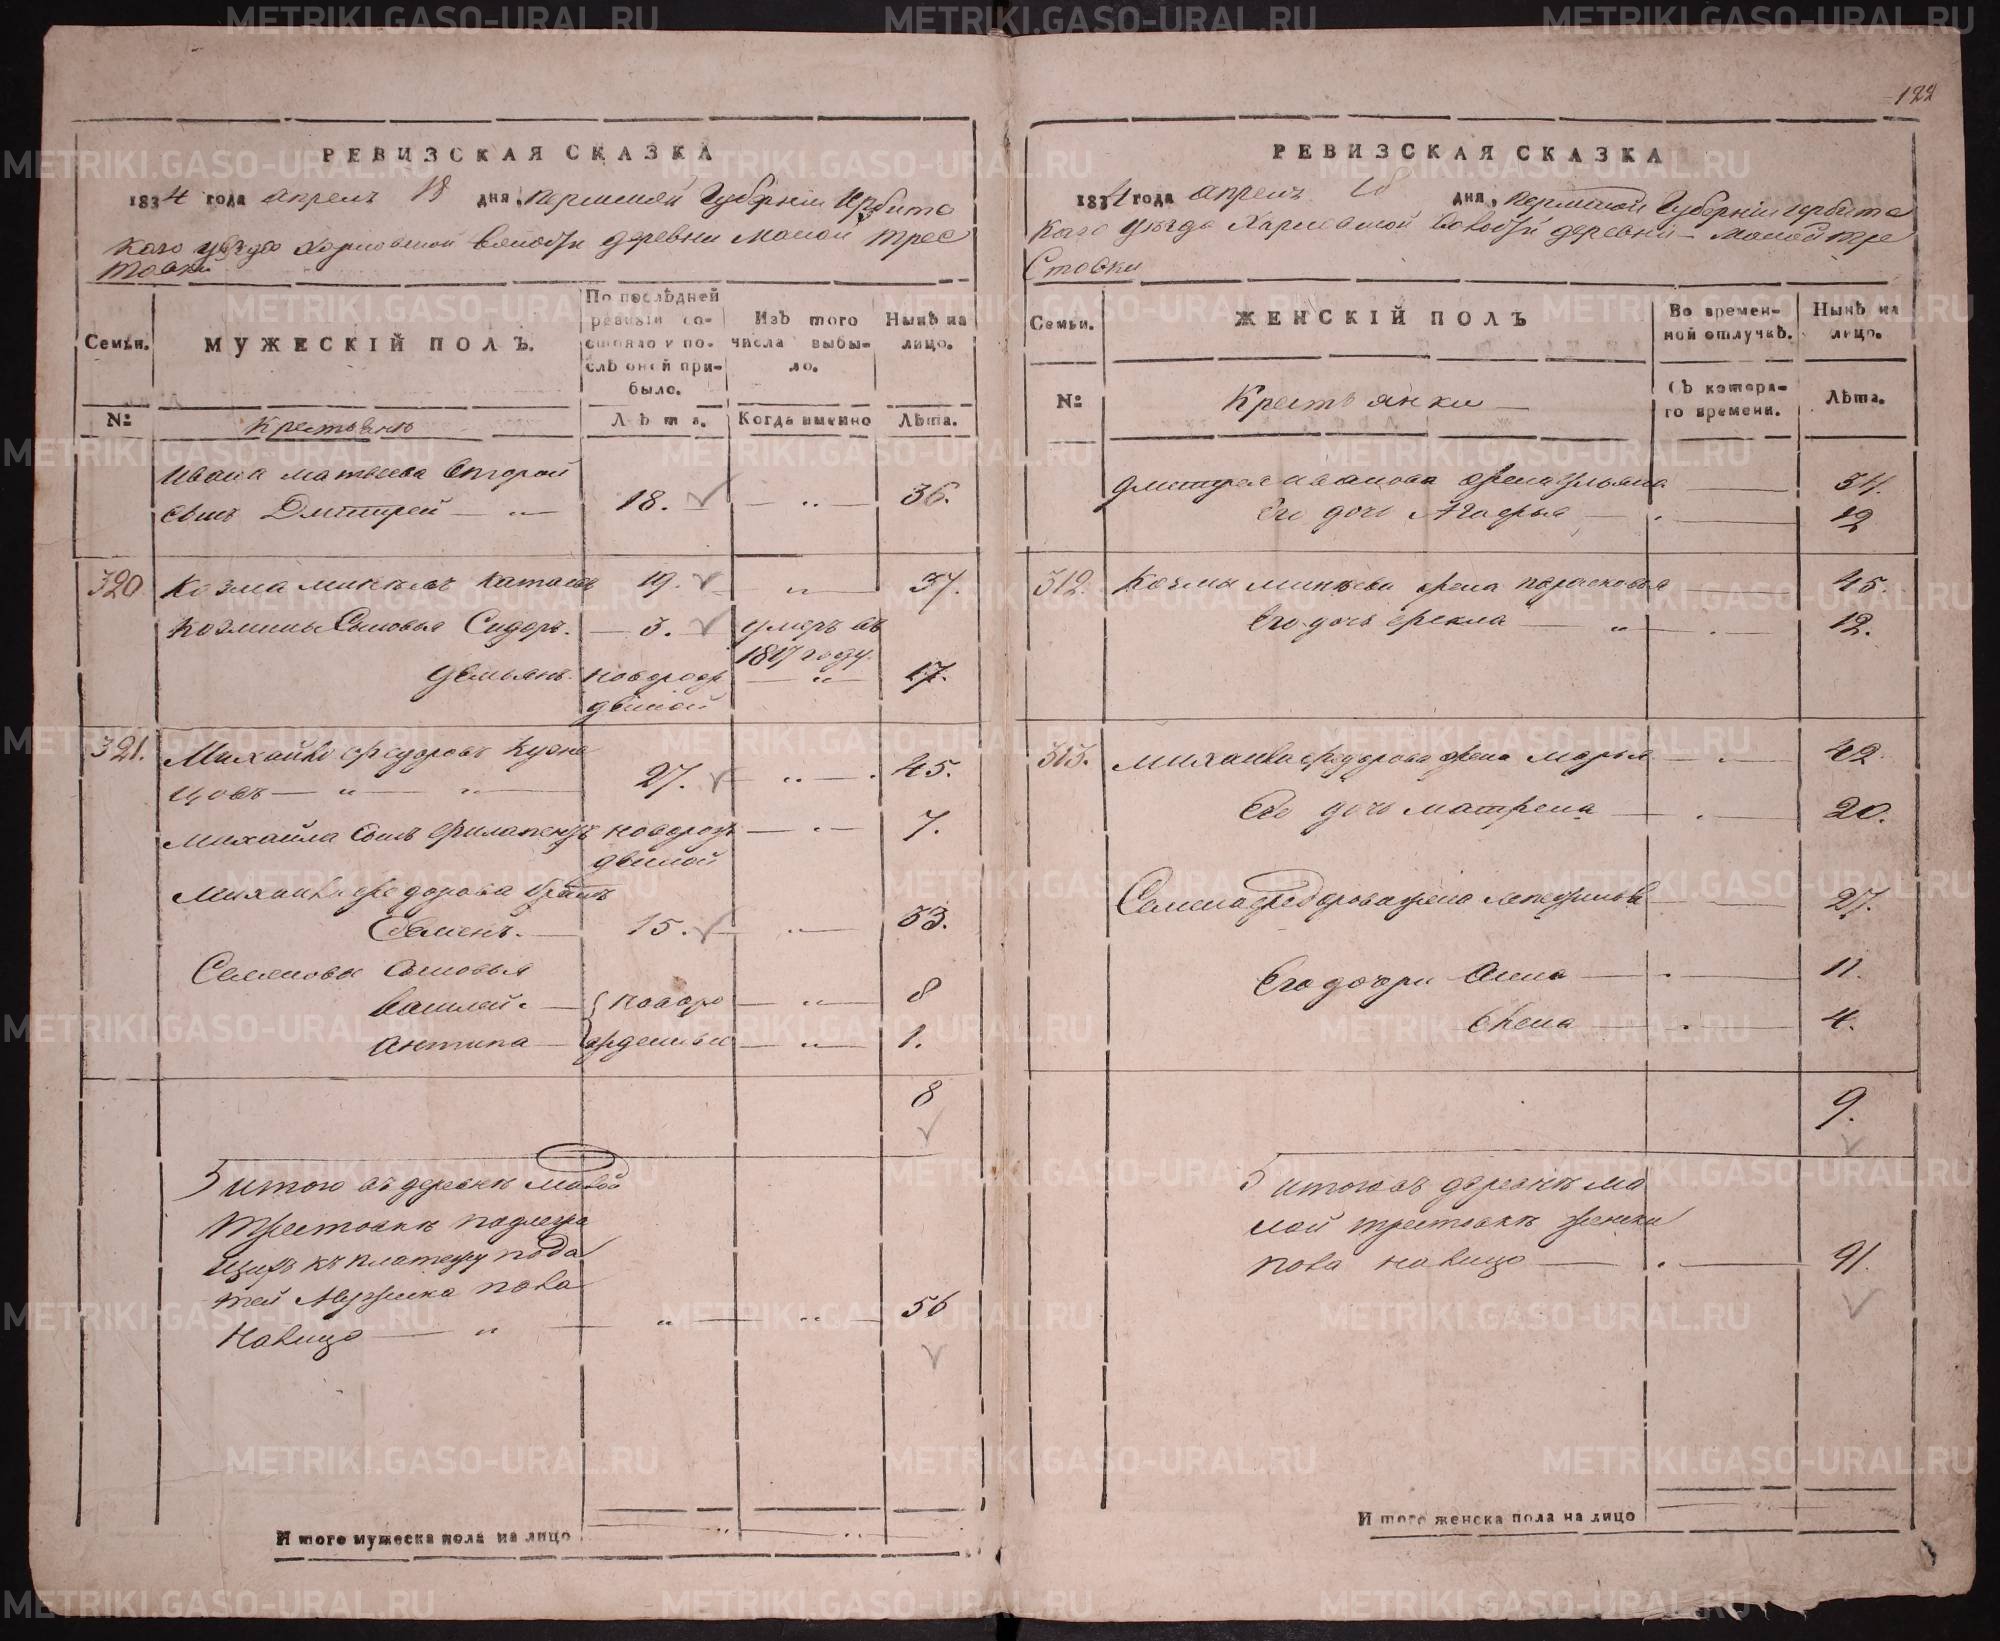 122
РЕВИЗСКАЯ СКАЗКА
1834 года апреля 18 дня, пермской Губерніи Ирбитс
каго уѣзда Харловской волости деревни Малой трес
товки
Семьи.
МУЖЕСКІЙ ПОЛЪ.
По послѣдней ревизіи состояло и послѣ оной прибыло.
Изъ того числа выбыло.
Нынѣ на лицо.
№:
Крестьянъ
Лѣта.
Когда именно
Лѣта.
Ивана матвеева второй
сынъ Дмитрей — 18. — 36.
320 Козма Минѣевъ 19. — 37.
Козмины Сыновья Сидоръ. — 3. умеръ въ
1817 году.
Демьянъ. новорож 17.
деной
321. Михайло федоровъ Кузне
цовъ — 27. — 45.
Михайла сынъ новорож — 7.
деной
Михайла федорова братъ
Семенъ. — 15. — 33.
Семеновы сыновья
Василей. — новоро — 8
антипа — жденные — 1.
8
итого въ деревнѣ Малой
Трестовкѣ подлежа
щихъ къ платежу пода
тей Мужска пола
Налицо — 56
И того мужеска пола на лицо
РЕВИЗСКАЯ СКАЗКА
1834 года апреля 18 дня, пермской Губерніи ирбитс
каго уѣзда Харловской волости деревни Малой тре
Стовки
Семьи.
ЖЕНСКІЙ ПОЛЪ
Во временной отлучкѣ.
Нынѣ на лицо.
№:
Крестьянки
Съ котораго времени.
Лѣта.
Дмитрея иванова жена ульяна — 34.
Его дочь Агафья — 12
312. Козмы минѣева жена парасковья — 45.
Его дочь фекла — 12.
313. Михаила федорова жена марья — 42
Его дочь матрена — 20.
Семена федорова жена — 27.
Его дочери анна — 11.
Елена — 4.
9.
итого въ деревнѣ ма
лой трестовкѣ женска
пола налицо — 91.
И того женска пола на лицо
METRIKI.GASO-URAL.RU